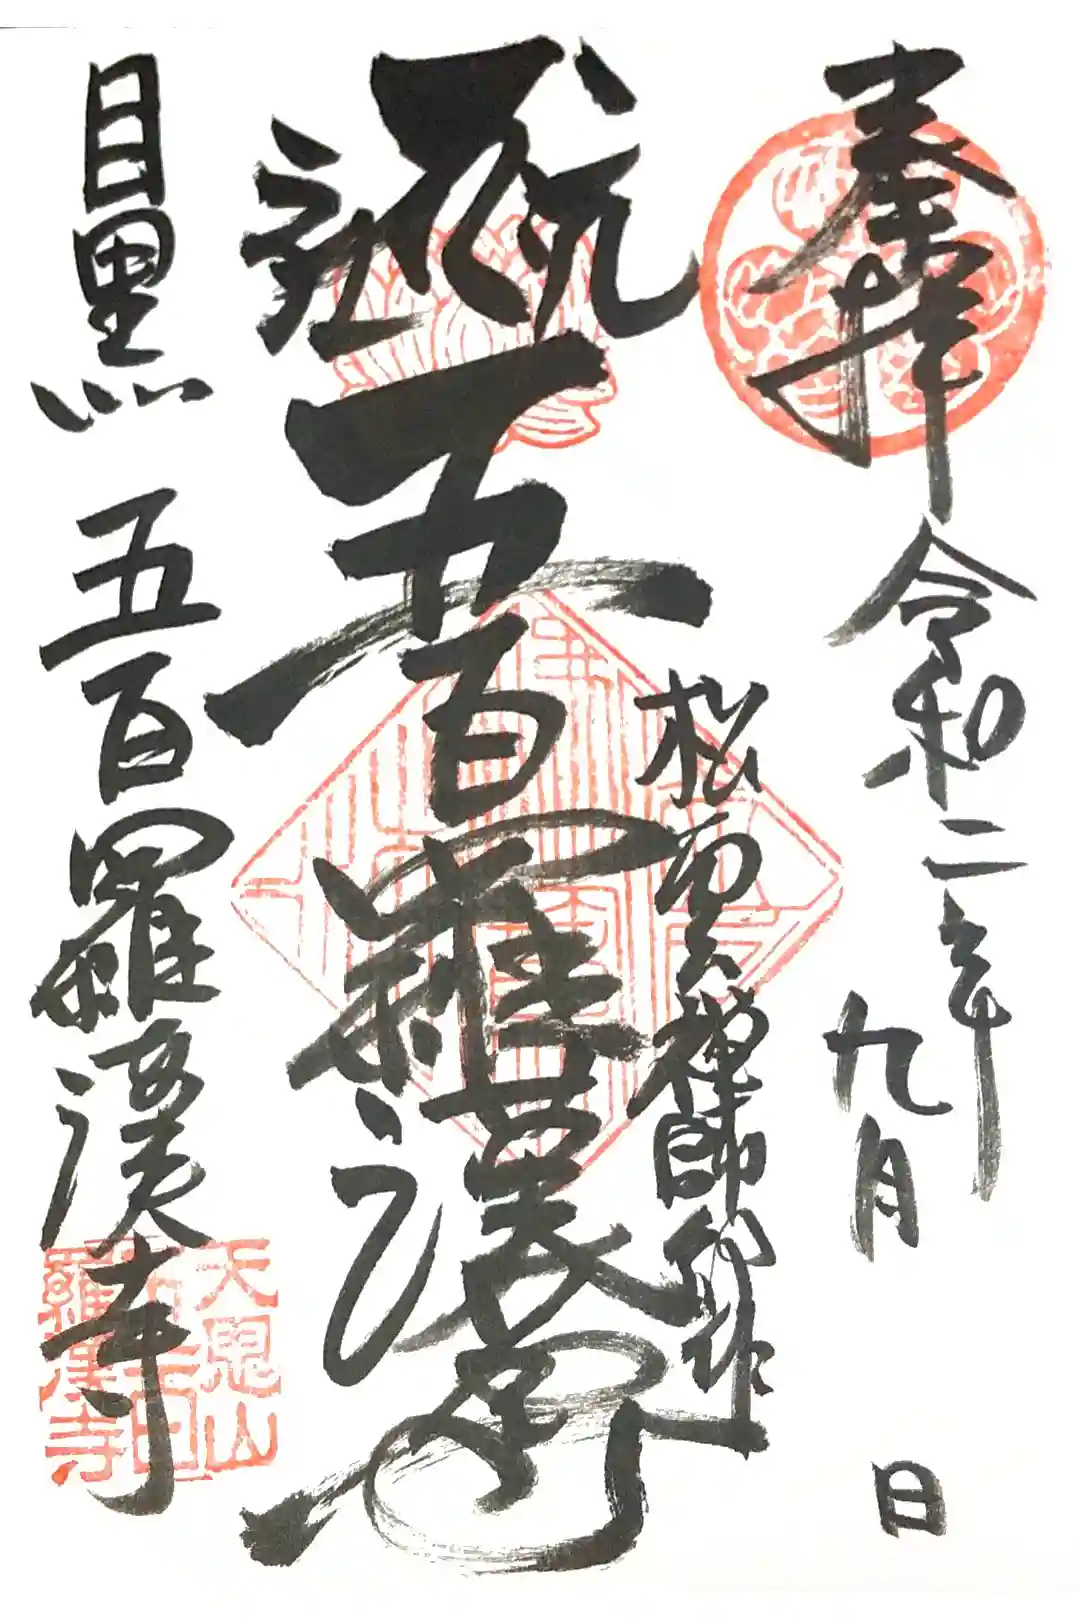 奉拝
令和二年 九月 日
松雲禅師御作
五百羅漢尊
目黒 五百羅漢寺
天恩山五百羅漢寺